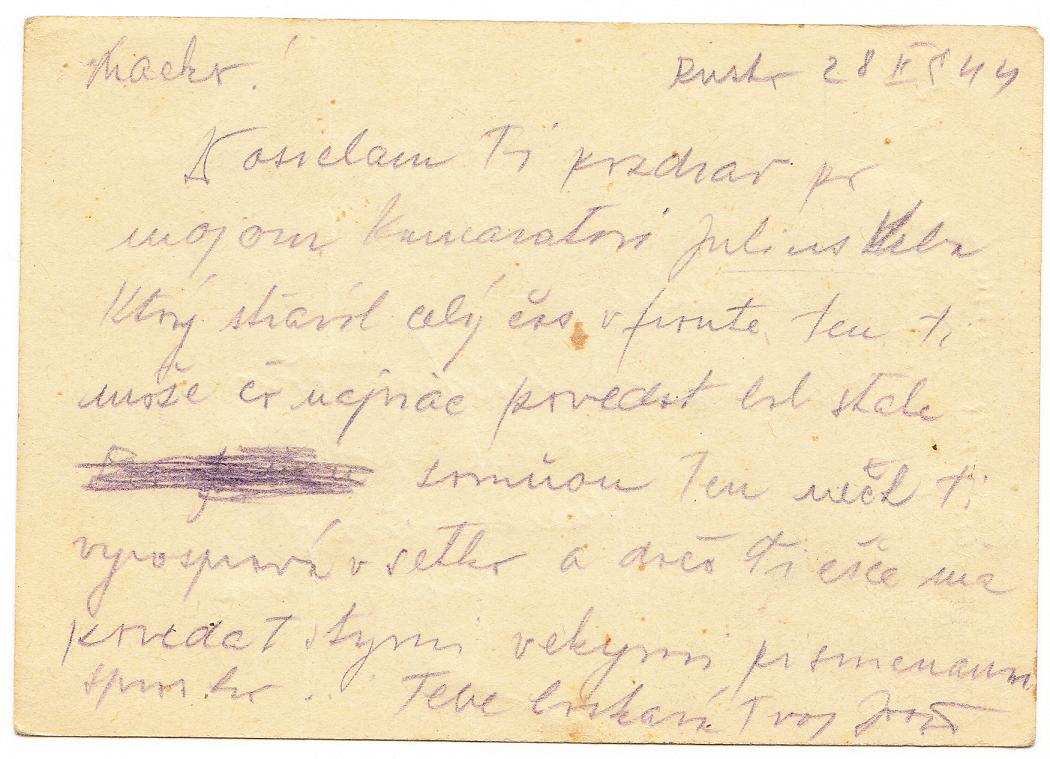 Macko! 28 44
Posielam Ti pozdrav po
mojom Kamaratovi Julius
Ktorý strávil celý čas v fronte, ten ti
može čo najviac povedat bol stale
somňou ten nech ti
vyrospráva všetko a dočo Ti ešče ma
povedat stymi vekymi pismenami
Tebe Tvoj